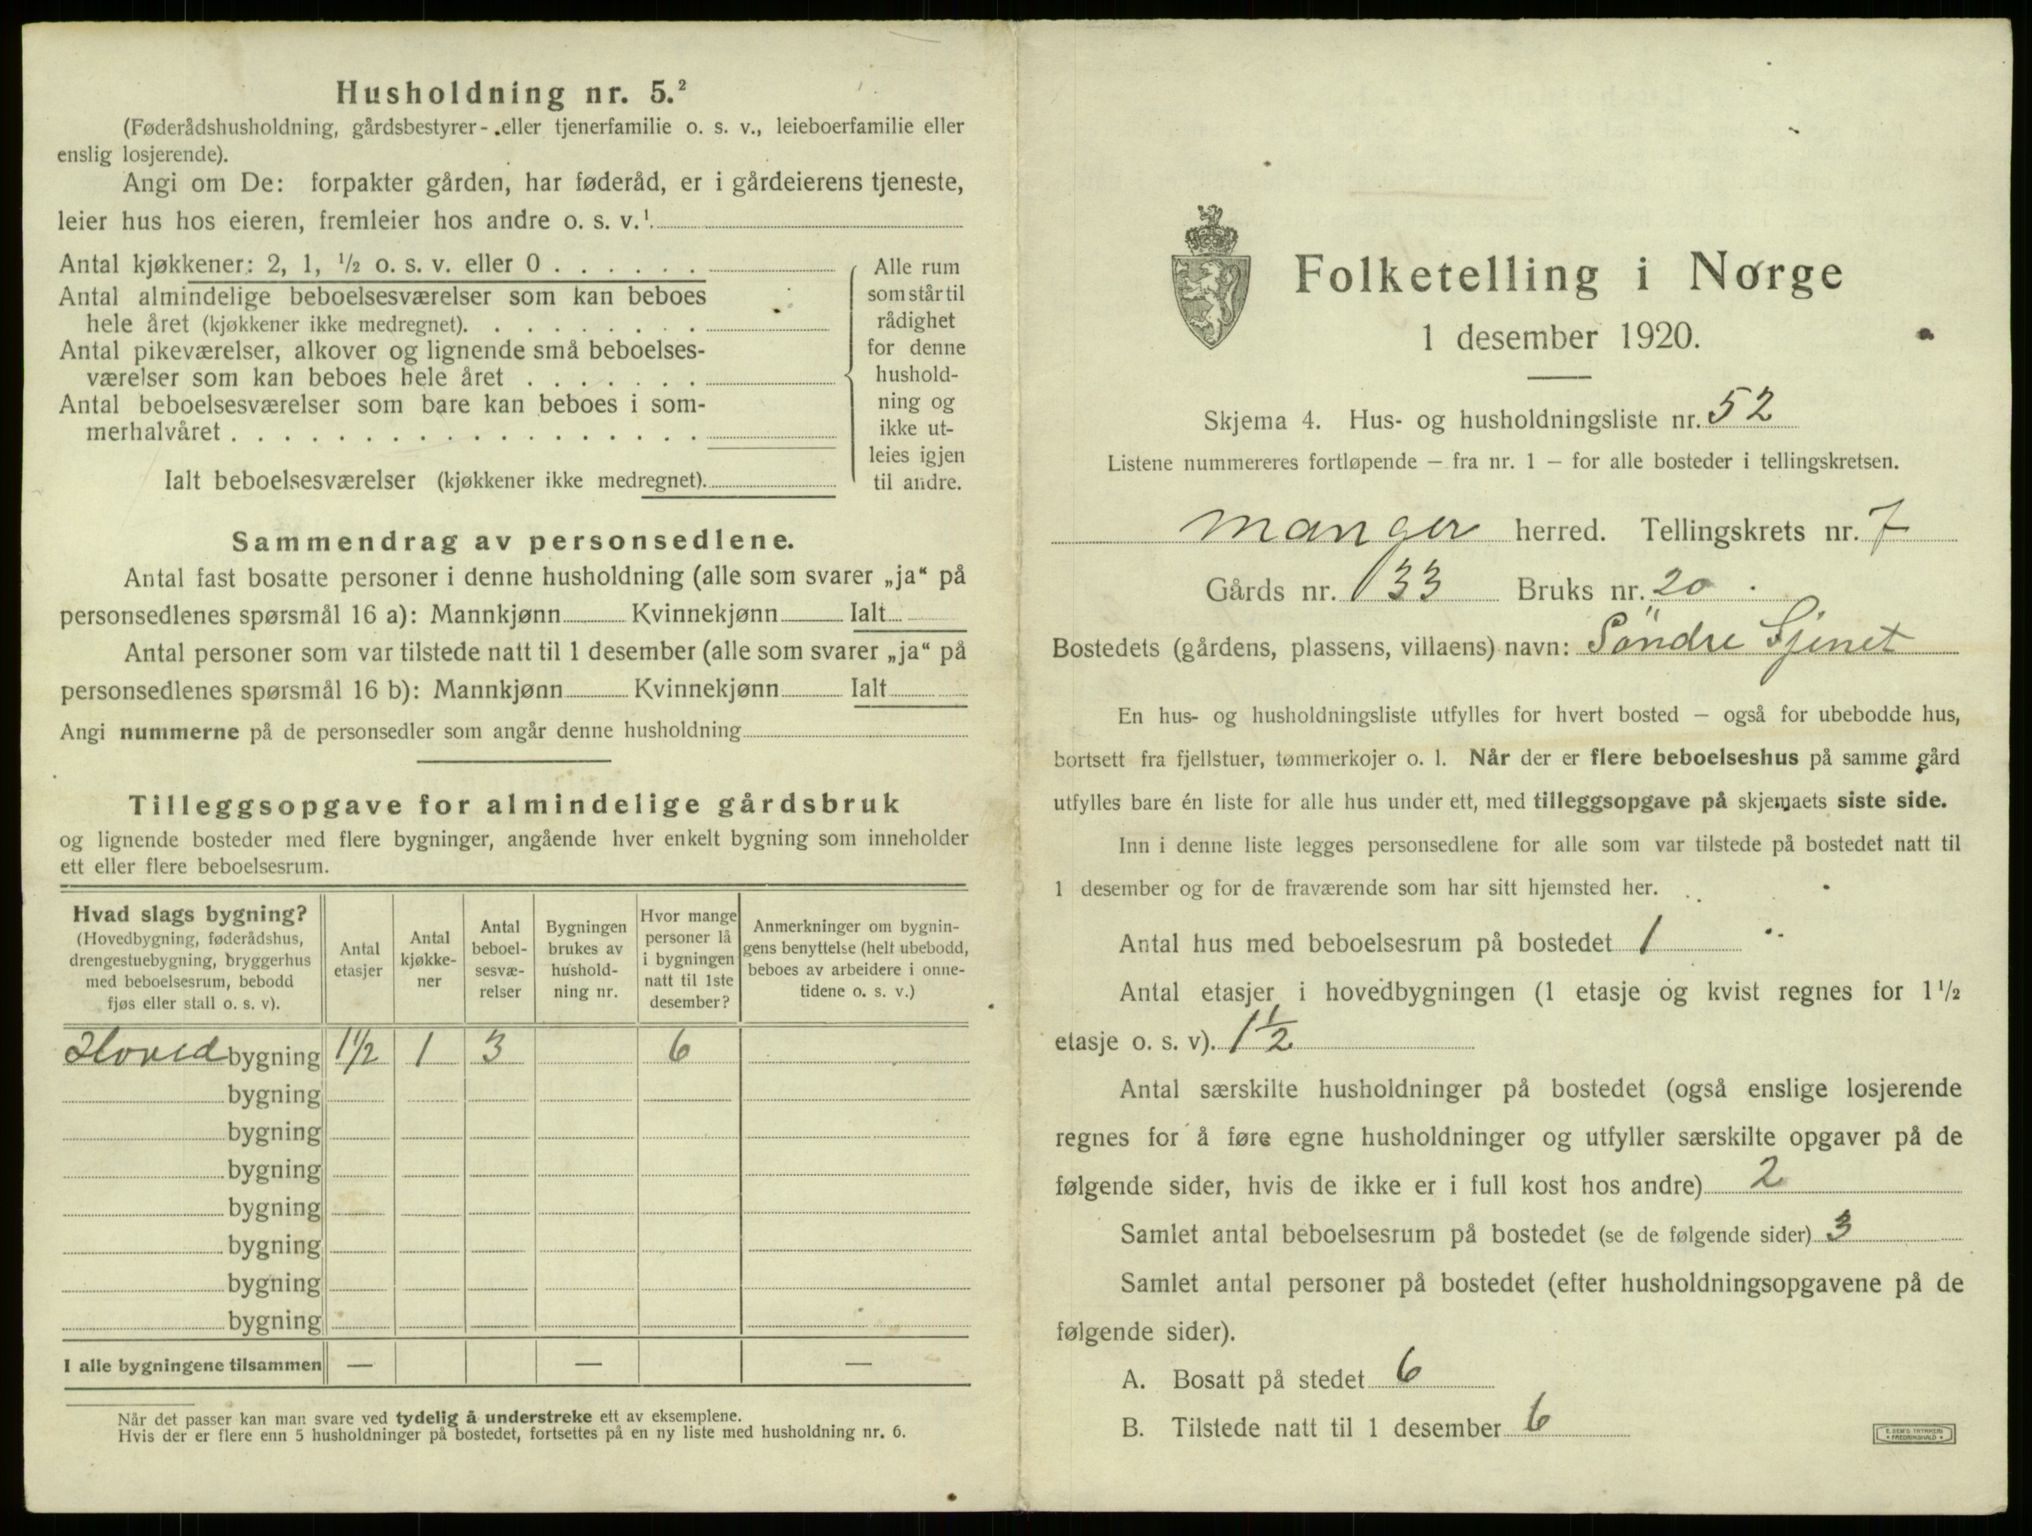 Husholdning nr. 5.²
(Føderådshusholdning, gårdsbestyrer- eller tjenerfamilie o. s. v., leieboerfamilie eller
enslig losjerende).
Angi om De: forpakter gården, har føderåd, er i gårdeierens tjeneste,
leier hus hos eieren, fremleier hos andre o. s. v.¹
Antal kjøkkener: 2, 1, ½ o. s. v. eller 0
Antal almindelige beboelsesværelser som kan beboes
hele året (kjøkkener ikke medregnet).
Antal pikeværelser, alkover og lignende små beboelses-
værelser som kan beboes hele året
Antal beboelsesværelser som bare kan beboes i som-
merhalvåret
Ialt beboelsesværelser (kjøkkener ikke medregnet).
Alle rum
som står til
rådighet
for denne
hushold-
ning og
ikke ut-
leies igjen
til andre.
Sammendrag av personsedlene.
Antal fast bosatte personer i denne husholdning (alle som svarer „ja“ på
personsedlenes spørsmål 16 a): Mannkjønn Kvinnekjønn Ialt
Antal personer som var tilstede natt til 1 desember (alle som svarer „ja“ på
personsedlenes spørsmål 16 b): Mannkjønn Kvinnekjønn Ialt
Angi nummerne på de personsedler som angår denne husholdning
Tilleggsopgave for almindelige gårdsbruk
og lignende bosteder med flere bygninger, angående hver enkelt bygning som inneholder
ett eller flere beboelsesrum.
Hvad slags bygning?
(Hovedbygning, føderådshus,
drengestuebygning, bryggerhus
med beboelsesrum, bebodd
fjøs eller stall o. s. v).
Antal
etasjer
Antal
kjøkke-
ner
Antal
beboel-
sesvæ-
relser
Bygningen
brukes av
hushold-
ning nr.
Hvor mange
personer lå
i bygningen
natt til 1ste
desember?
Anmerkninger om bygnin-
gens benyttelse (helt ubebodd,
beboes av arbeidere i onne-
tidene o. s. v.)
Hoved bygning 1½ 1 3 6
bygning
bygning
bygning
bygning
bygning
bygning
bygning
I alle bygningene tilsammen — — —
Når det passer kan man svare ved tydelig å understreke ett av eksemplene.
Hvis der er flere enn 5 husholdninger på bostedet, fortsettes på en ny liste med husholdning nr. 6.
Folketelling i Norge
1 desember 1920.
Skjema 4. Hus- og husholdningsliste nr. 52
Listene nummereres fortløpende – fra nr. 1 – for alle bosteder i tellingskretsen.
Manger herred. Tellingskrets nr. 7
Gårds nr. 133 Bruks nr. 20
Bostedets (gårdens, plassens, villaens) navn: Söndre Gjenet
En hus- og husholdningsliste utfylles for hvert bosted – også for ubebodde hus,
bortsett fra fjellstuer, tømmerkojer o. l. Når der er flere beboelseshus på samme gård
utfylles bare én liste for alle hus under ett, med tilleggsopgave på skjemaets siste side.
Inn i denne liste legges personsedlene for alle som var tilstede på bostedet natt til
1 desember og for de fraværende som har sitt hjemsted her.
Antal hus med beboelsesrum på bostedet 1
Antal etasjer i hovedbygningen (1 etasje og kvist regnes for 1½
etasje o. s. v). 1½
Antal særskilte husholdninger på bostedet (også enslige losjerende
regnes for å føre egne husholdninger og utfyller særskilte opgaver på de
følgende sider, hvis de ikke er i full kost hos andre) 2
Samlet antal beboelsesrum på bostedet (se de følgende sider) 3
Samlet antal personer på bostedet (efter husholdningsopgavene på de
følgende sider).
A. Bosatt på stedet 6
B. Tilstede natt til 1 desember 6
E. SEM'S TRYKKERI
FREDRIKSHALD